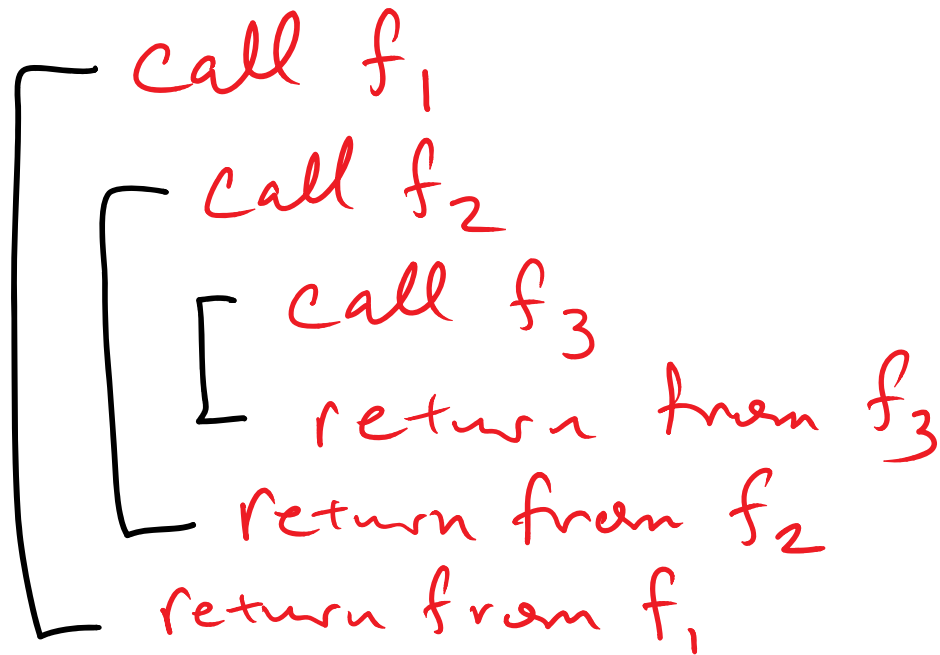 call f₁
call f₂
call f₃
return from f₃
return from f₂
return from f₁